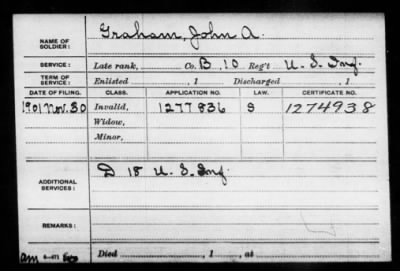 NAME OF SOLDIER: Graham, John A.
SERVICE: Late rank, Co. B, 10 Reg't U. S. Inf.
TERM OF SERVICE: Enlisted , 1 Discharged , 1
DATE OF FILING. CLASS. APPLICATION NO. LAW. CERTIFICATE NO.
1901 Nov. 30 Invalid, 1277836 S 1274938
Widow,
Minor,
ADDITIONAL SERVICES: D 18 U. S. Inf.
REMARKS:
Died , 1 , at